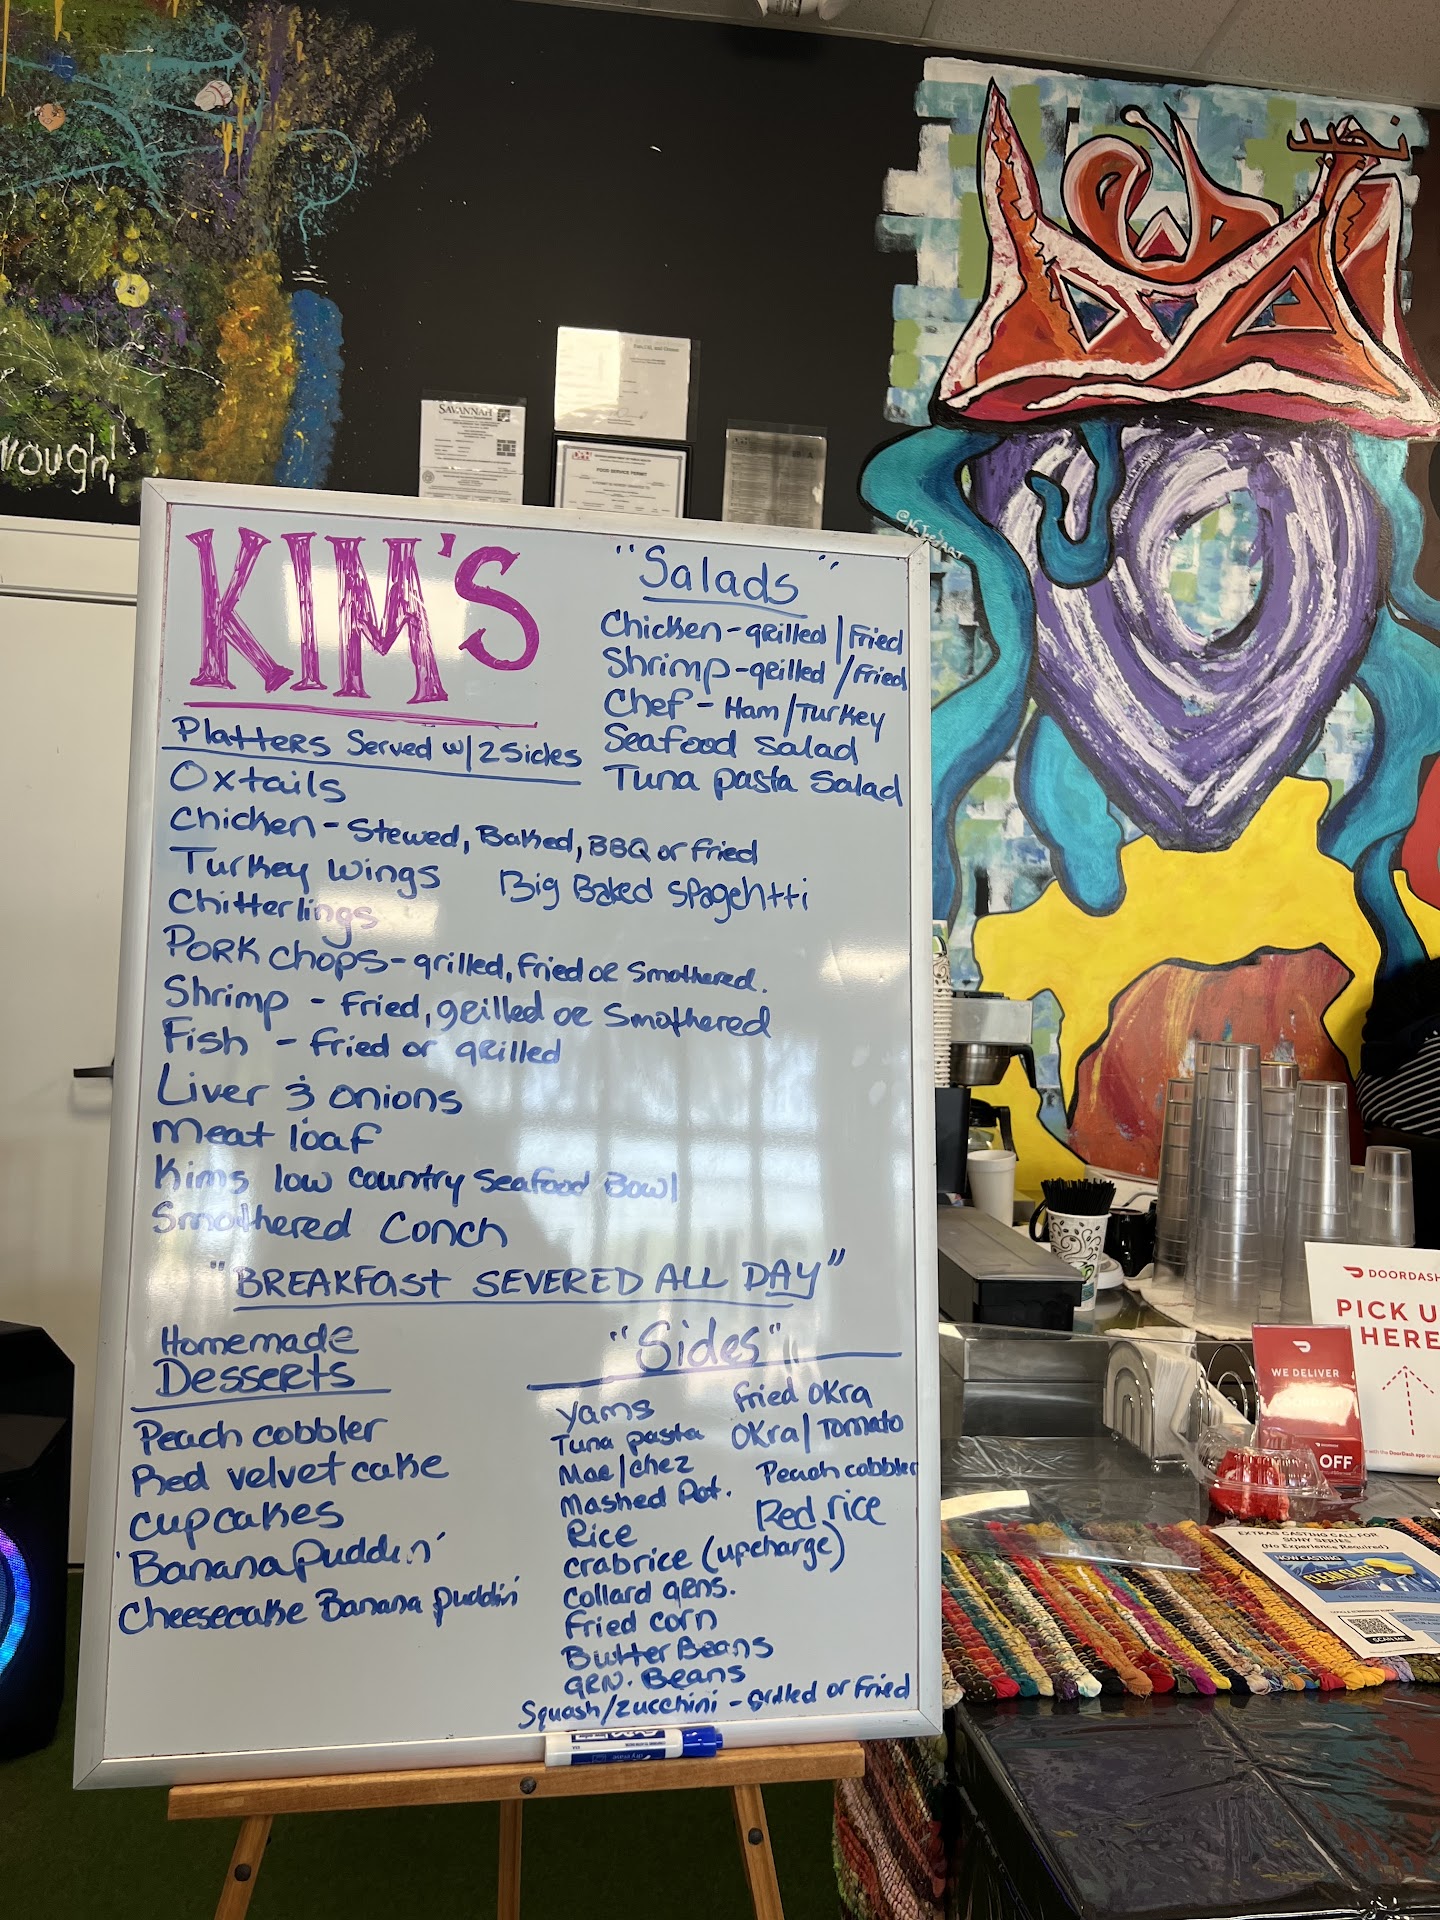 rough!
SAVANNAH
FOOD SERVICE PERMIT
KIM'S
Platters Served w/2 Sides
Oxtails
Chicken - Stewed, Baked, BBQ or Fried
Turkey wings
Big Baked Spagehtti
Chitterlings
Pork chops - grilled, Fried or Smothered.
Shrimp - Fried, grilled or Smothered
Fish - Fried or grilled
Liver & onions
Meat loaf
Kims low country Seafood Bowl
Smothered Conch
"Salads"
Chicken - grilled / Fried
Shrimp - grilled / Fried
Chef - Ham / Turkey
Seafood Salad
Tuna pasta Salad
"BREAKFAST SEVERED ALL DAY"
Homemade
Desserts
Peach cobbler
Red velvet cake
cupcakes
'Banana Puddin'
Cheesecake Banana puddin'
"Sides"
Yams
Tuna pasta
Mac/chez
Mashed Pot.
Rice
crabrice (upcharge)
Collard grns.
Fried corn
Butter Beans
GRN. Beans
Squash/zucchini - Grilled or Fried
Fried OKra
OKra/Tomato
Peach cobbler
Red rice
DOORDASH
PICK U
HERE
WE DELIVER
OFF
EXTRAS CASTING CALL FOR
SONY SERIES
(No Experience Required)
NOW CASTING
SCAN ME